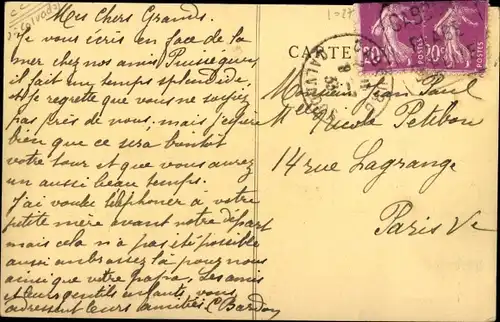 Mes Chers Grands.
Je vous écris en face de la
mer chez nos amis Puissegur,
il fait un temps splendide,
et je regrette que vous ne soyez
pas près de nous, mais j'espère
bien que ce sera bientôt
votre tour et que vous aurez
un aussi beau temps.
J'ai voulu téléphoner à votre
petite mère avant notre départ
mais cela n'a pas été possible
aussi embrassez la pour nous
ainsi que votre papa. Les amis
et leurs gentils enfants vous
adressent leurs amitiés C Bardon
CARTE
Jean Paul
et Nicole Petibon
14 rue Lagrange
Paris Ve
20c
20c
CALVADOS